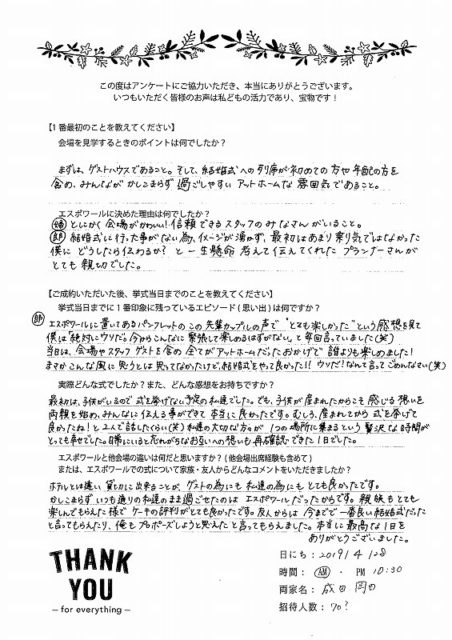 この度はアンケートにご協力いただき、本当にありがとうございます。
いつもいただく皆様のお声は私どもの活力であり、宝物です！
【1番最初のことを教えてください】
会場を見学するときのポイントは何でしたか？
まずは、ゲストハウスであること。そして、結婚式への列席が初めての方や年配の方を
含め、みんながかしこまらず過ごしやすいアットホームな雰囲気であること。
エスポワールに決めた理由は何でしたか？
婦 とにかく会場がかわいい！信頼できるスタッフのみなさんがいること。
郎 結婚式に行った事がない為、イメージが湧かず、最初はあまり乗り気ではなかった
僕にどうしたら伝わるか？と一生懸命考えて伝えてくれたプランナーさんが
とても親切でした。
【ご成約いただいた後、挙式当日までのことを教えてください】
挙式当日までに1番印象に残っているエピソード（思い出）は何ですか？
郎
エスポワールに置いてあるパンフレットの先輩カップルの声で"とても楽しかった"という感想を見て
僕は"絶対にウソだ。今からこんなに緊張して楽しめるはずがない。"と毎回言っていました(笑)
当日は、会場やスタッフ、ゲストを含め全てがアットホームだったおかげで誰よりも楽しめました！
まさかこんな風に思うとは思ってなかったけど、結婚式をやって良かった!! ウソだ！なんて言ってごめんなさい(笑)
実際どんな式でしたか？また、どんな感想をお持ちですか？
最初は、子供がいるので式を挙げない予定の私達でした。でも、子供が産まれたからこそ感じる想いを
両親を始め、みんなに伝える事ができて本当に良かったです。むしろ、産まれてから式を挙げて
良かったね！と2人で話したくらい(笑)私達の大切な方々が1つの場所に集まるという贅沢な時間が
とても幸せでした。日常にいると忘れがちなお互いへの想いも再確認できた1日でした。
エスポワールと他会場の違いは何だと思いますか？（他会場出席経験も含めて）
または、エスポワールでの式について家族・友人からどんなコメントをいただきましたか？
ホテルとは違い貸し切りに出来ることが、ゲストの為にも私達の為にもとても良かったです。
かしこまらずいつも通りの私達のまま過ごせたのはエスポワールだったからです。親族もとても
楽しんでもらえた様でケーキの評判がとても良かったです。友人からは今までで一番良い結婚式だった
と言ってもらえたり、俺もプロポーズしようと思えたと言ってもらえました。本当に最高な1日を
ありがとうございました。
THANK
YOU
– for everything –
日にち：2019/4/28
時間：AM ・ PM 10:30
両家名：成田 岡田
招待人数：70?